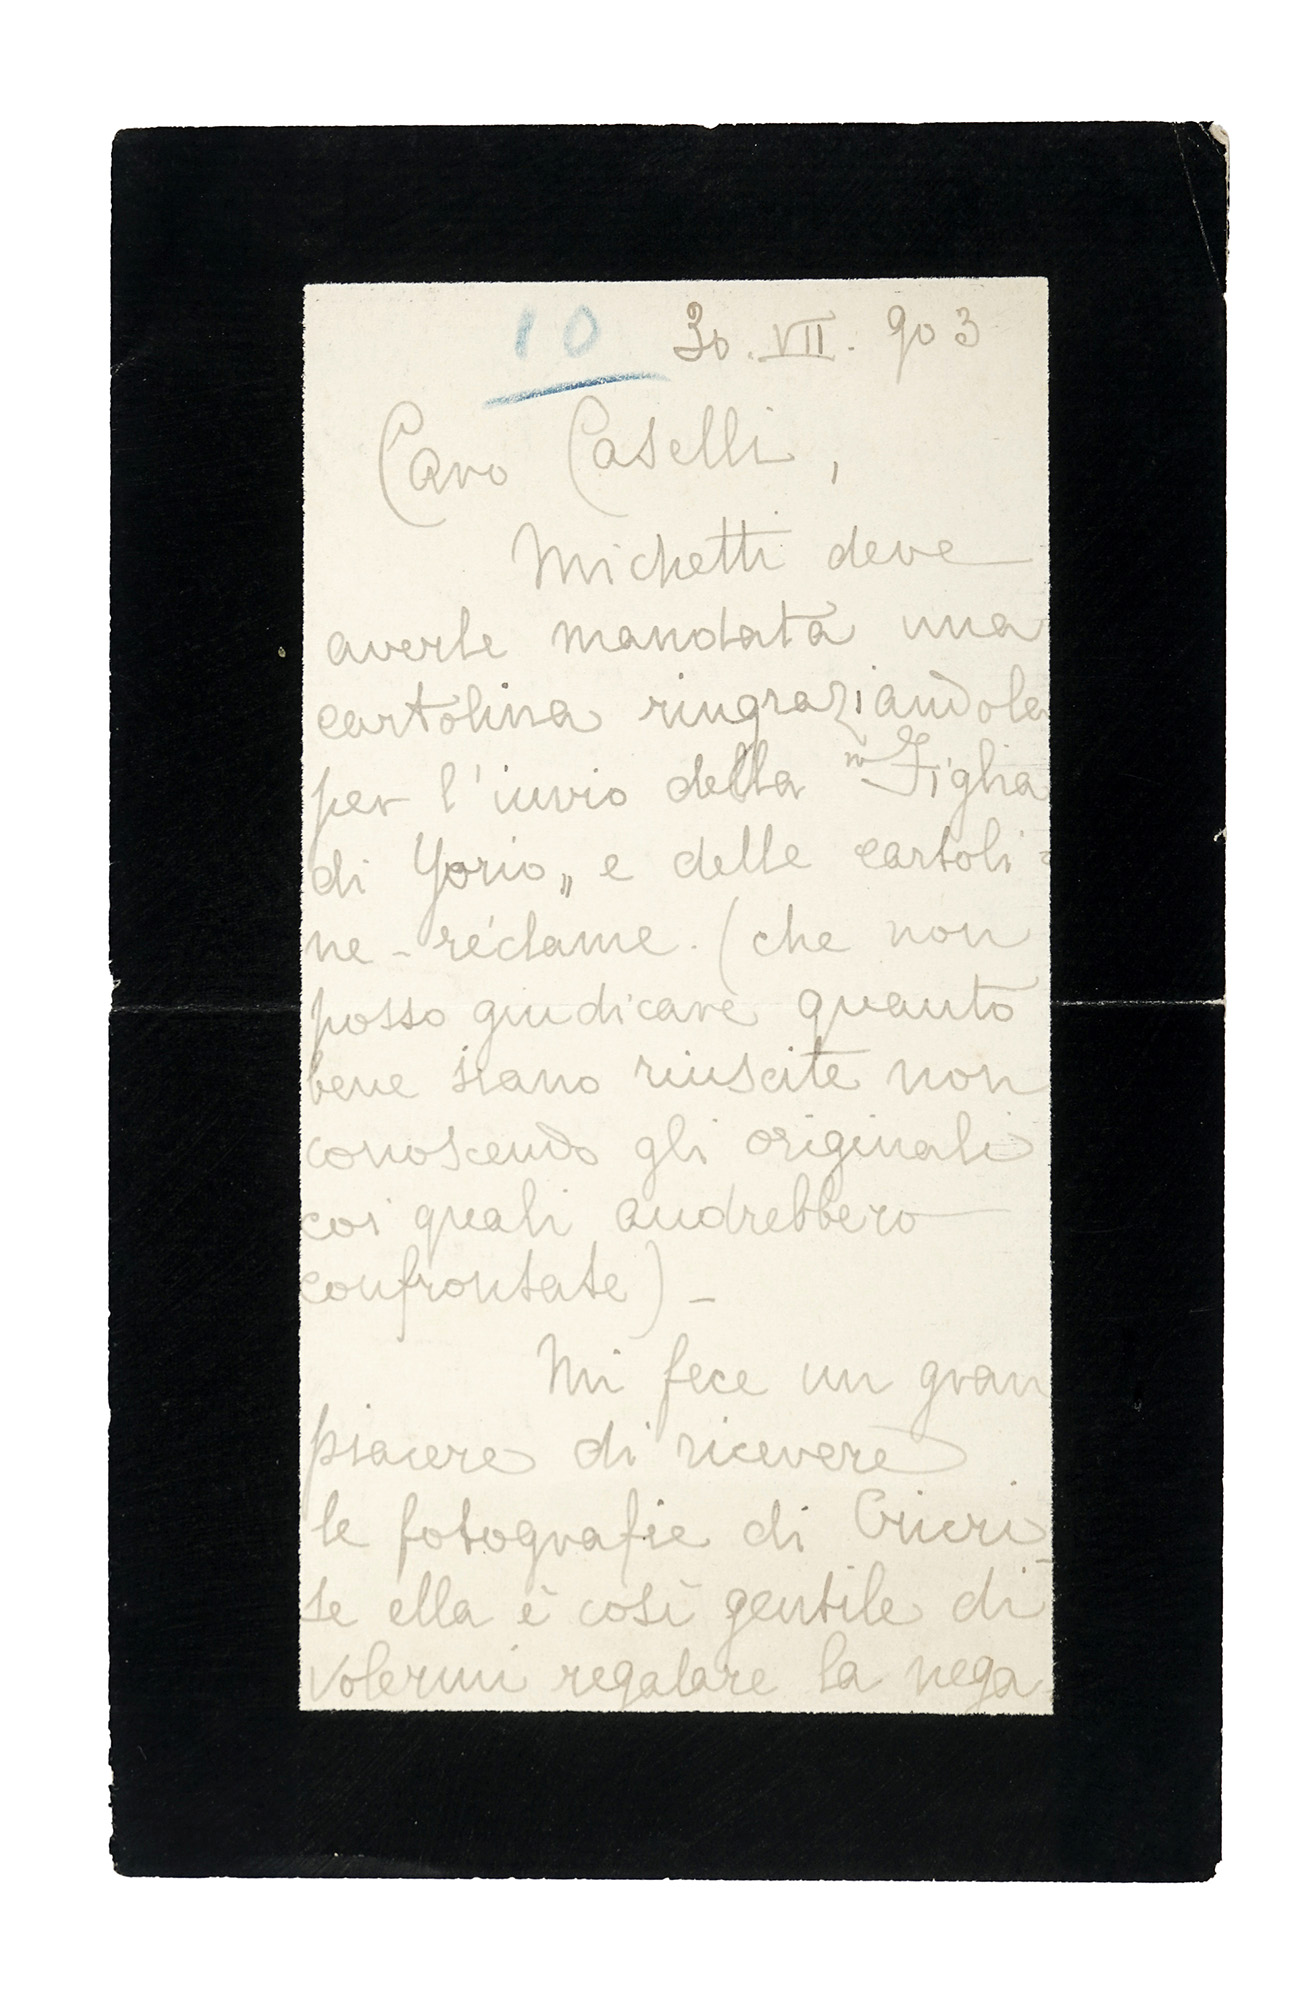 10 30. VII. 903
Caro Caselli,
Michetti deve
averle mandata una
cartolina ringraziandola
per l'invio della "Figlia
di Yorio„ e delle cartoli=
ne-réclame. (che non
posso giudicare quanto
bene siano riuscite non
conoscendo gli originali
coi quali andrebbero
confrontate) -
Mi fece un gran
piacere di ricevere
le fotografie di Cricri
se ella è così gentile di
volermi regalare la nega-